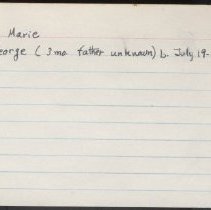 Marie
eorge ( 3 mo father unknown) b. July 19-